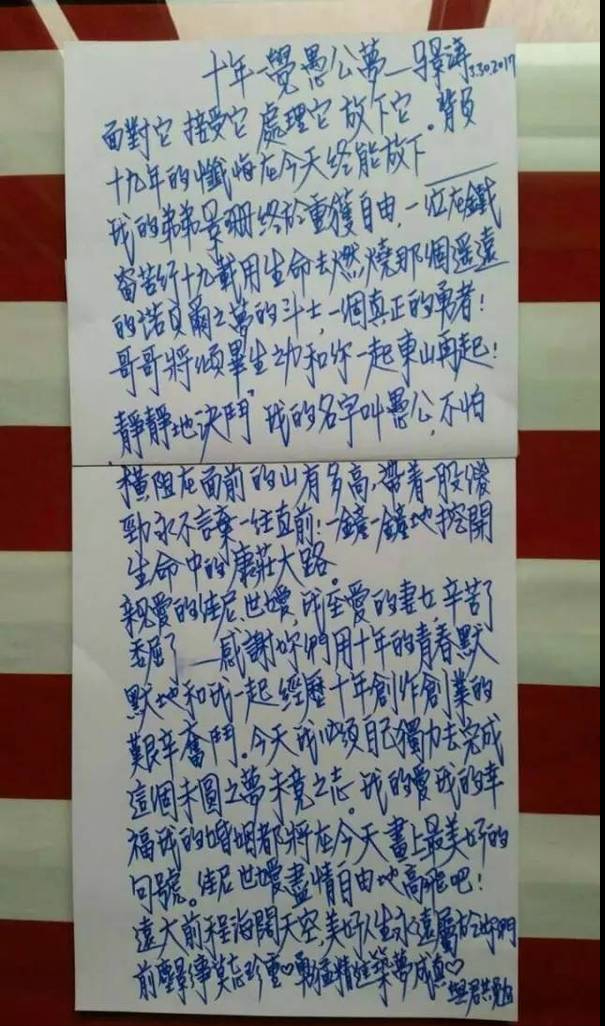 十年一覺愚公夢—馬景濤3.30.2017
面對它 接受它 處理它 放下它。背負
十九年的懺悔在今天終能放下——
我的弟弟景珊終於重獲自由,一位在鐵
窗苦行十九載用生命去燃燒那個遥遠
的諾貝爾之夢的斗士,一個真正的勇者!
哥哥將傾畢生之力和你一起東山再起!
靜靜地決鬥 我的名字叫愚公,不怕
橫阻在面前的山有多高,帶着一股傻
勁永不言棄一往直前!一鏟一鏟地挖開
生命中的康莊大路。
親愛的佳尼、世嬡,我至愛的妻女,辛苦了
委屈了——感謝妳們用十年的青春默
默地和我一起經歷十年創作創業的
艱辛奮鬥。今天我必須自己獨力去完成
這個未圓之夢未竟之志。我的愛我的幸
福我的婚姻都將在今天畫上最美好的
句號。佳尼世嬡盡情自由地高飛吧!
遠大前程海闊天空,美好人生永遠屬於妳們
前塵緣事莫忘珍重♡勇猛精進築夢成真♡
與君共勉